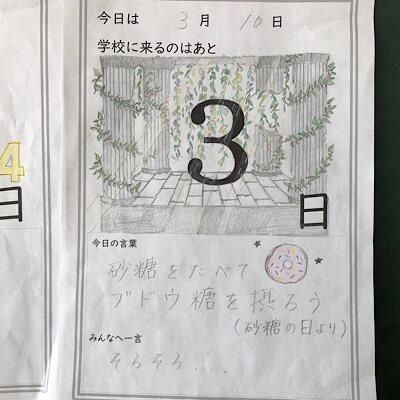 今日は 3月 10日
学校に来るのはあと
3日
今日の言葉
砂糖をたべて
ブドウ糖を摂ろう
(砂糖の日より)
みんなへ一言
そろそろ….。
4
日